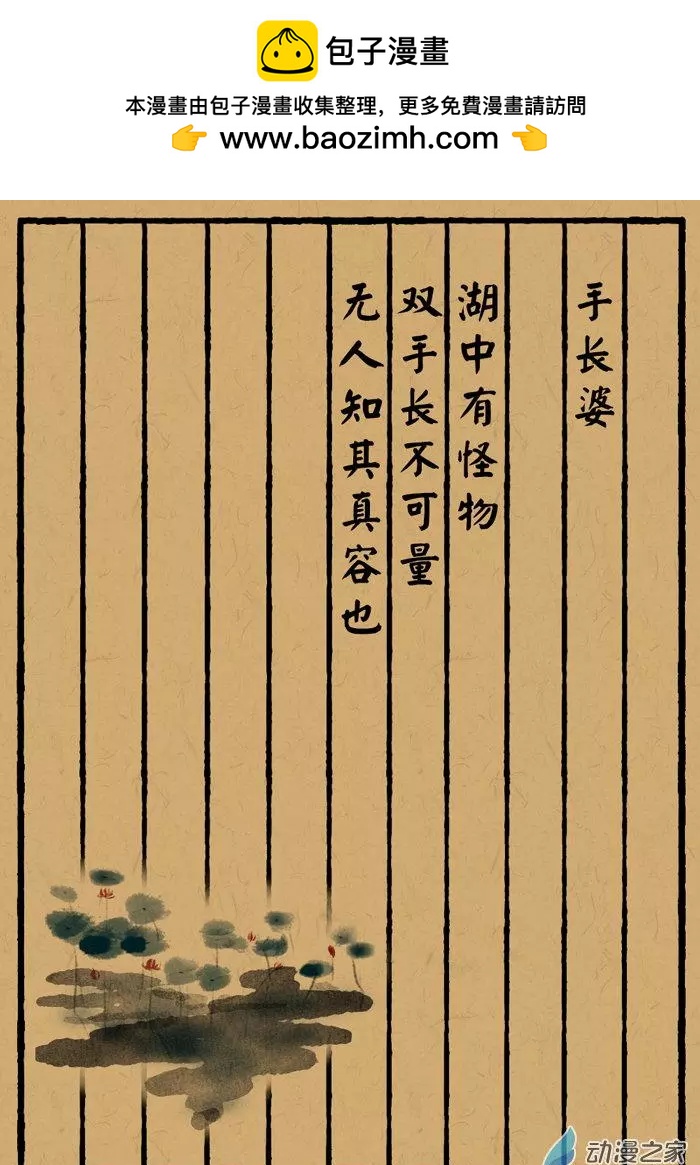 包子漫畫
本漫畫由包子漫畫收集整理，更多免費漫畫請訪問
www.baozimh.com
手长婆
湖中有怪物
双手长不可量
无人知其真容也
动漫之家